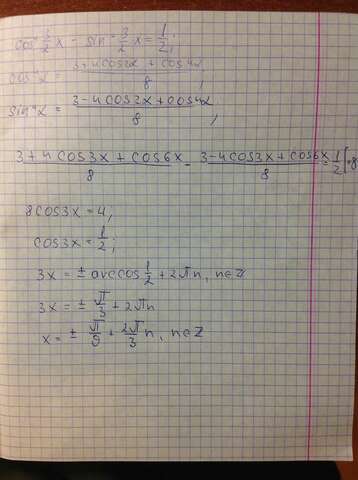 cos⁴ 3/2 x - sin⁴ 3/2 x = 1/2;
cos⁴α = (3+4cos2α + cos4α)/8
sin⁴α = (3-4cos2α+cos4α)/8,
(3+4cos3x+cos6x)/8 - (3-4cos3x+cos6x)/8 = 1/2 |·8
8cos3x=4;
cos3x=1/2;
3x = ± arccos 1/2 + 2πn, n∈Z
3x = ± π/3 + 2πn
x = ± π/9 + 2π/3 n, n∈Z